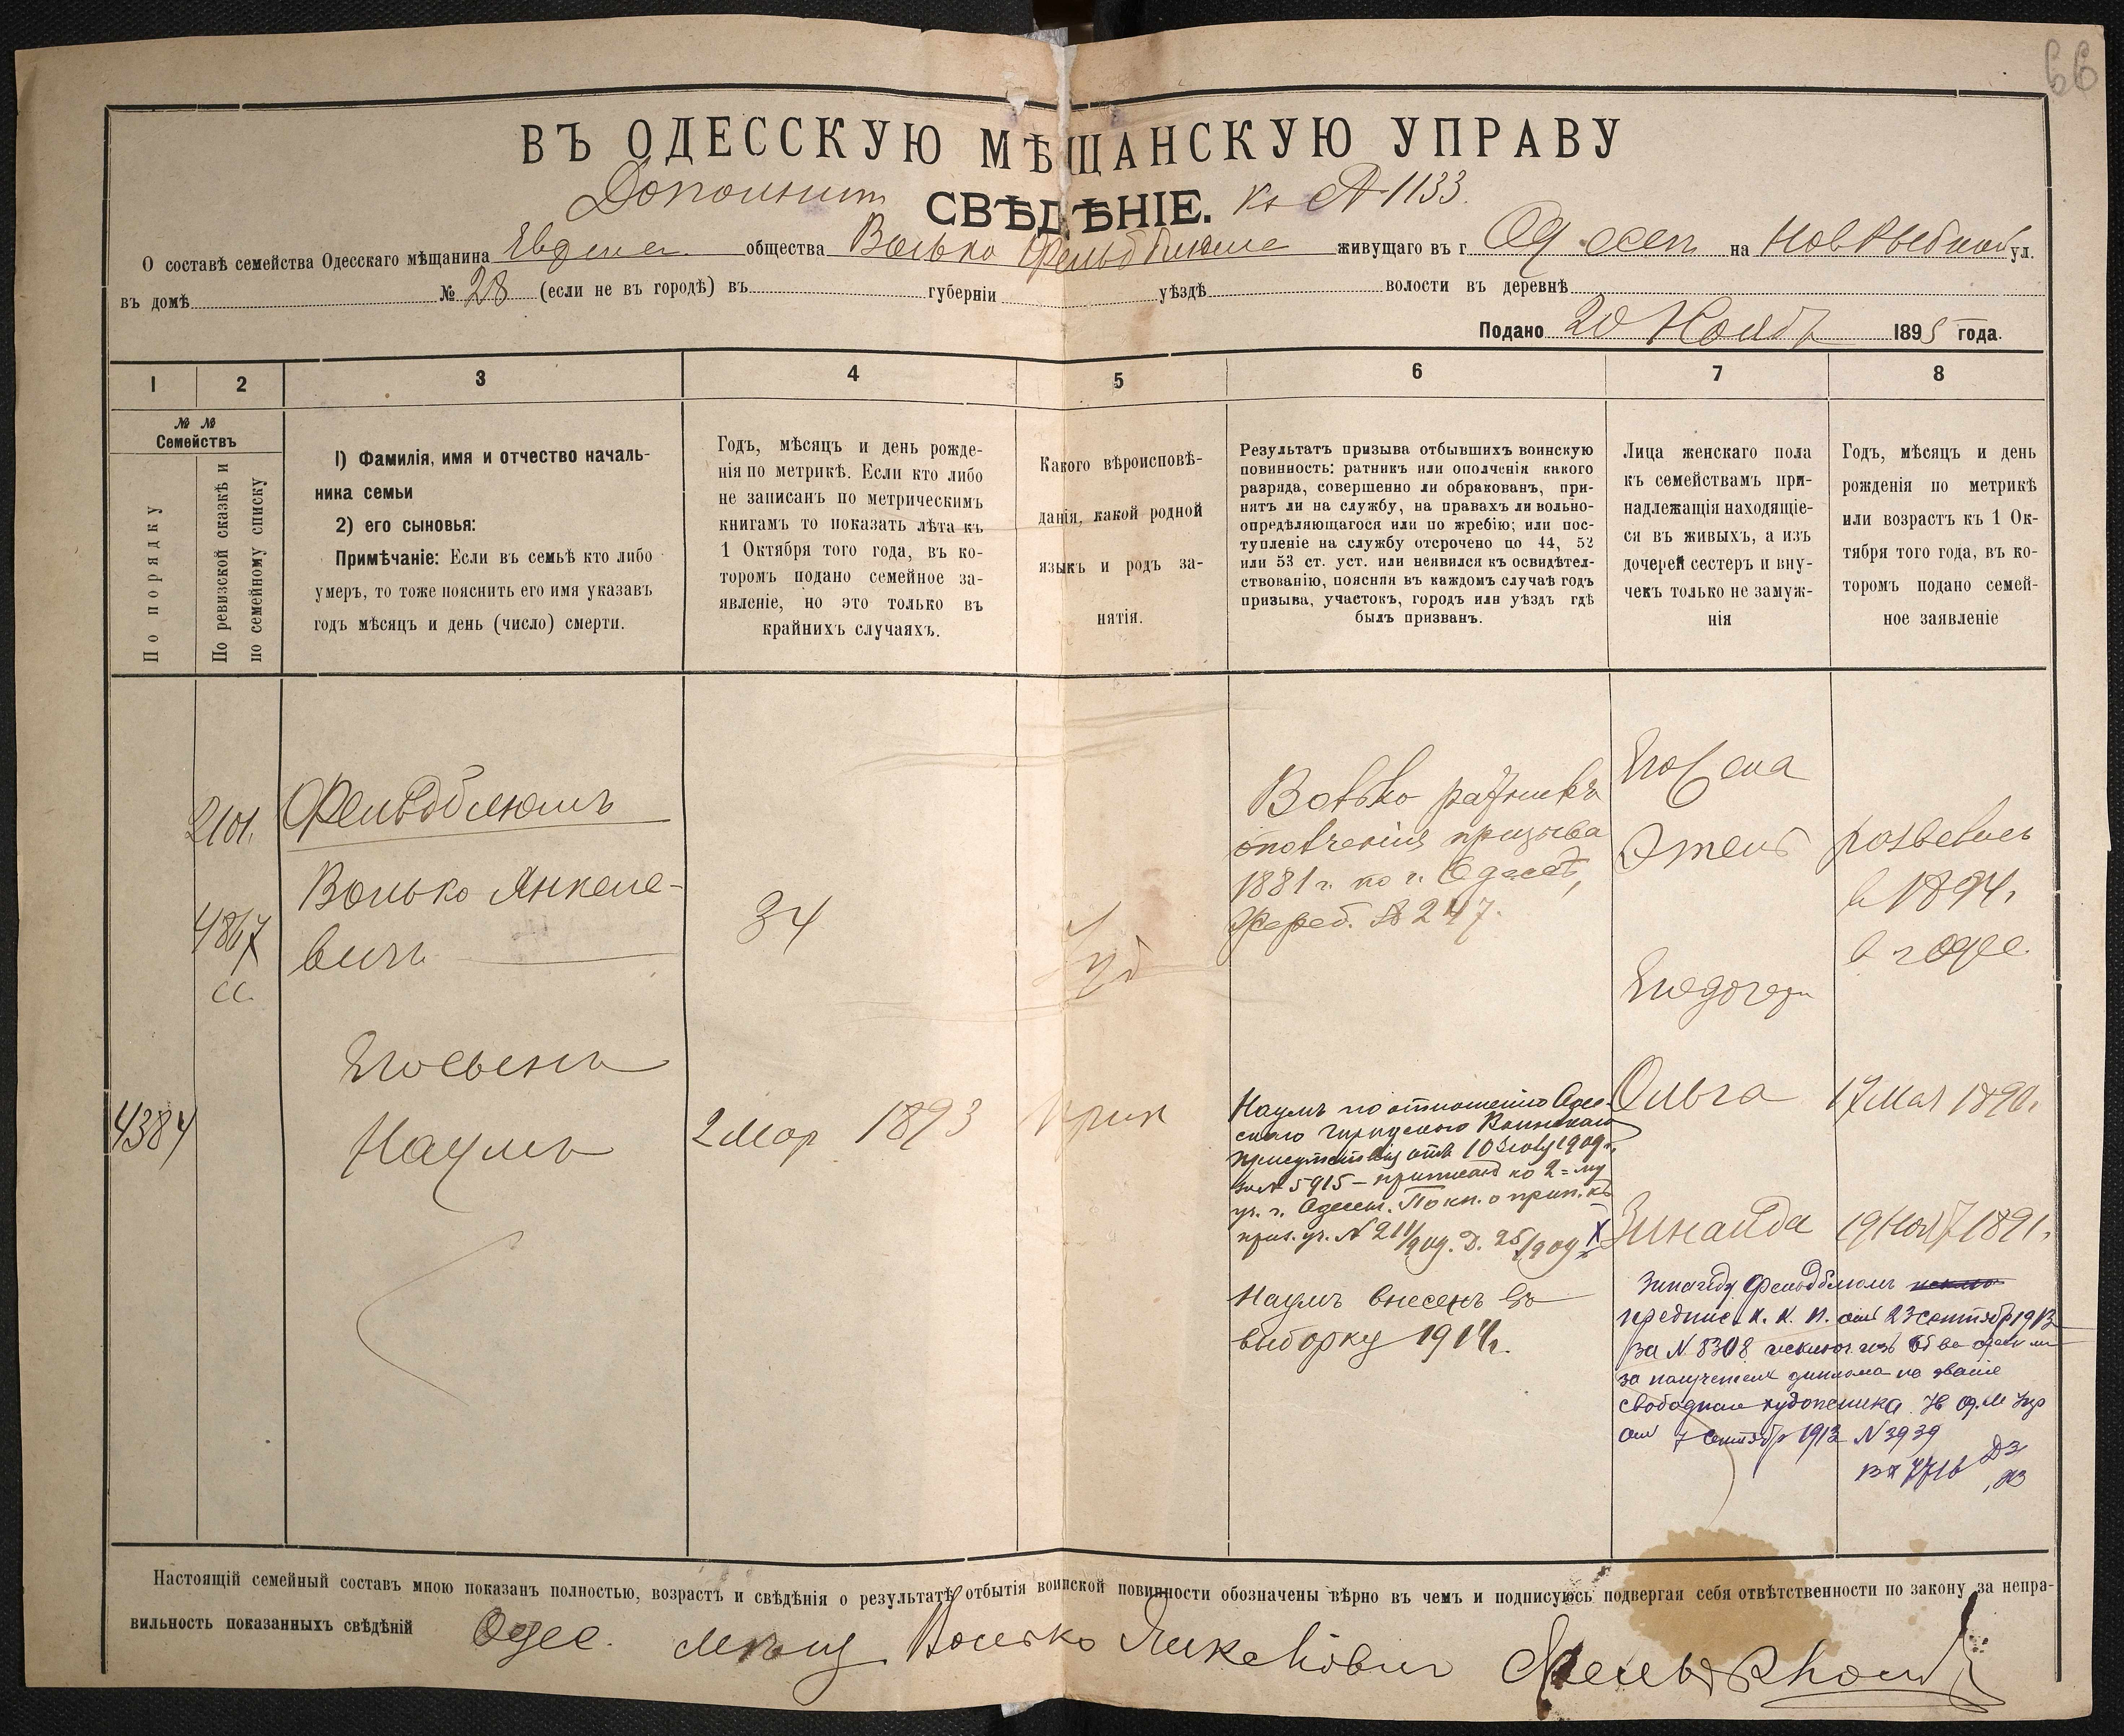 66
ВЪ ОДЕССКУЮ МѢЩАНСКУЮ УПРАВУ
Дополнит СВѢДѢНІЕ. къ № 1133.
О составѣ семейства Одесскаго мѣщанина Еврея общества Волько Фельдблюма живущаго въ г. Одессѣ на Нов Рыбной ул.
въ домѣ № 28 (если не въ городѣ) въ губерніи уѣздѣ волости въ деревнѣ
Подано 20 Ноябр 1895 года.
1 2 3 4 5 6 7 8
№ №
Семействъ
По порядку
По ревизской сказкѣ и
по семейному списку
1) Фамилія, имя и отчество началь-
ника семьи
2) его сыновья:
Примѣчаніе: Если въ семьѣ кто либо
умеръ, то тоже пояснить его имя указавъ
годъ мѣсяцъ и день (число) смерти.
Годъ, мѣсяцъ и день рожде-
нія по метрикѣ. Если кто либо
не записанъ по метрическимъ
книгамъ то показать лѣта къ
1 Октября того года, въ ко-
торомъ подано семейное за-
явленіе, но это только въ
крайнихъ случаяхъ.
Какого вѣроисповѣ-
данія, какой родной
языкъ и родъ за-
нятія.
Результатъ призыва отбывшихъ воинскую
повинность: ратникъ или ополченія какого
разряда, совершенно ли обракованъ, при-
нятъ ли на службу, на правахъ ли вольно-
опредѣляющагося или по жребію; или пос-
тупленіе на службу отсрочено по 44, 52
или 53 ст. уст. или неявился къ освидѣтел-
ствованію, поясняя въ каждомъ случаѣ годъ
призыва, участокъ, городъ или уѣздъ гдѣ
былъ призванъ.
Лица женскаго пола
къ семействамъ при-
надлежащія находящіе-
ся въ живыхъ, а изъ
дочерей сестеръ и вну-
чекъ только не замуж-
нія
Годъ, мѣсяцъ и день
рожденія по метрикѣ
или возрастъ къ 1 Ок-
тября того года, въ ко-
торомъ подано семей-
ное заявленіе
2101.
4867
сс.
Фельдблюмъ
Волько Янкеле-
вичъ
34
Іуд
Волько ратникъ
ополченія призыва
1881 г. по г. Одессѣ,
Жереб. № 247.
Его жена
Этель
развелись
в 1894.
в г Одес.
Его дочери
Его сынъ
4384
Наумъ
2 Мар 1893
Наумъ по отношенію Одес-
скаго Городского Воинскаго
присутствія отъ 10 1909 г.
за № 5915 – приписанъ ко 2-му
уч. г. Одессы. По кн. о прип. къ
приз. уч. № 211/909. Д. 25/909
Ольга 17 Мая 1890.
Зинаида 19 Ноя 1891.
Наумъ внесенъ въ
выборку 1914 г.
Зинаида Фельдблюмъ
предпис. К. К. П. отъ 23 сентябр 1913
за № 8308 исключ. изъ
за полученіемъ диплома на званіе
свободнаго художника
отъ 7 сентябр 1913 № 3939
Настоящій семейный составъ мною показанъ полностью, возрастъ и свѣдѣнія о результатѣ отбытія воинской повинности обозначены вѣрно въ чемъ и подписуюсь подвергая себя отвѣтственности по закону за непра-
вильность показанныхъ свѣдѣній Одес. мѣщ Волько Янкелевич Фельдблюмъ